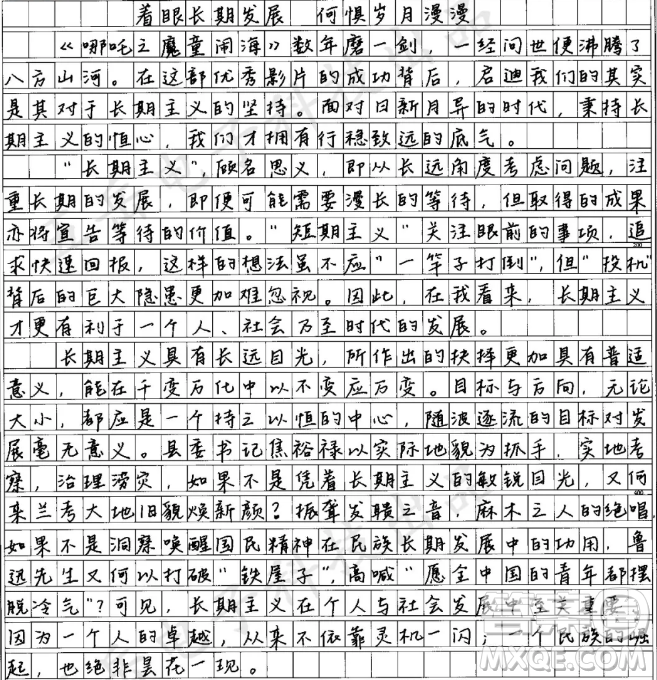 着眼长期发展 何惧岁月漫漫
《哪吒之魔童闹海》数年磨一剑，一经问世便沸腾了
八方山河。在这部优秀影片的成功背后，启迪我们的其实
是其对于长期主义的坚持。面对日新月异的时代，秉持长
期主义的恒心，我们才拥有行稳致远的底气。
"长期主义"，顾名思义，即从长远角度考虑问题，注
重长期的发展，即便可能需要漫长的等待，但取得的成果
亦将宣告等待的价值。"短期主义"关注眼前的事项，追
求快速回报，这样的想法虽不应"一竿子打倒"，但"投机"
背后的巨大隐患更加难忽视。因此，在我看来，长期主义
才更有利于一个人、社会乃至时代的发展。
长期主义具有长远目光，所作出的抉择更加具有普适
意义，能在千变万化中以不变应万变。目标与方向，无论
大小，都应是一个持之以恒的中心，随波逐流的目标对发
展毫无意义。县委书记焦裕禄以实际地貌为抓手，实地考
察，治理涝灾，如果不是凭着长期主义的敏锐目光，又何
来兰考大地旧貌焕新颜？振聋发聩之音，麻木之人的绝唱，
如果不是洞察唤醒国民精神在民族长期发展中的功用，鲁
迅先生又何以打破"铁屋子"，高喊"愿全中国的青年都摆
脱冷气"？可见，长期主义在个人与社会发展中至关重要，
因为一个人的卓越，从来不依靠灵机一闪；一个民族的崛
起，也绝非昙花一现。
200
400
答案圈
MXQE.COM